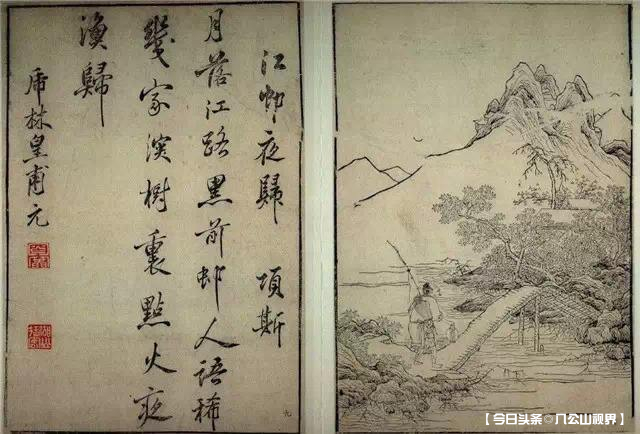 江邨夜歸 項斯
月落江路黑前邨人語稀
幾家深樹裏點火夜
漁歸
虎林皇甫元
九
【今日头条@八公山视界】